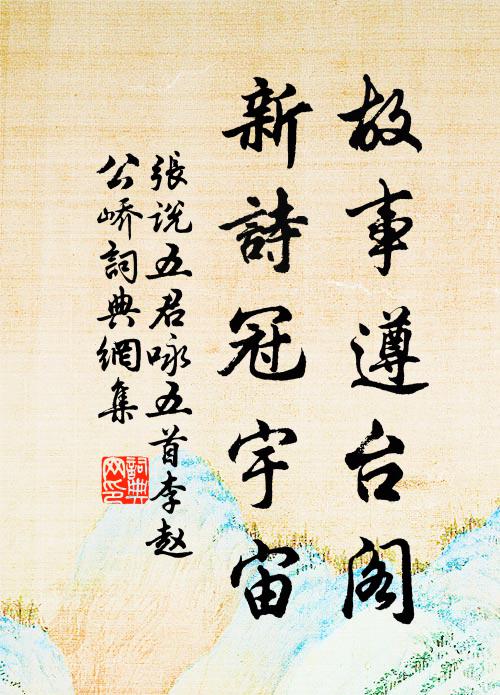 故事遵台阁
新詩冠宇宙
張说五君咏五首李赵
公峤詞典網集
詞典
网印